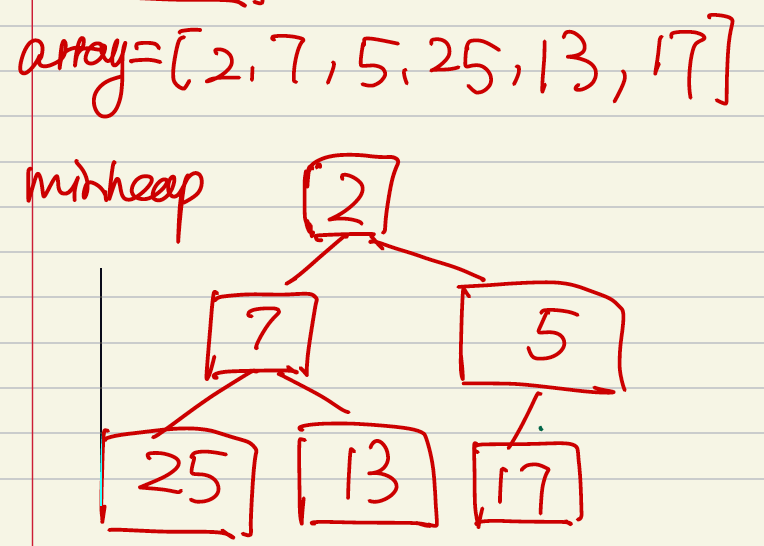 array=[2,7,5,25,13,17]
minheap
2
7 5
25 13 17